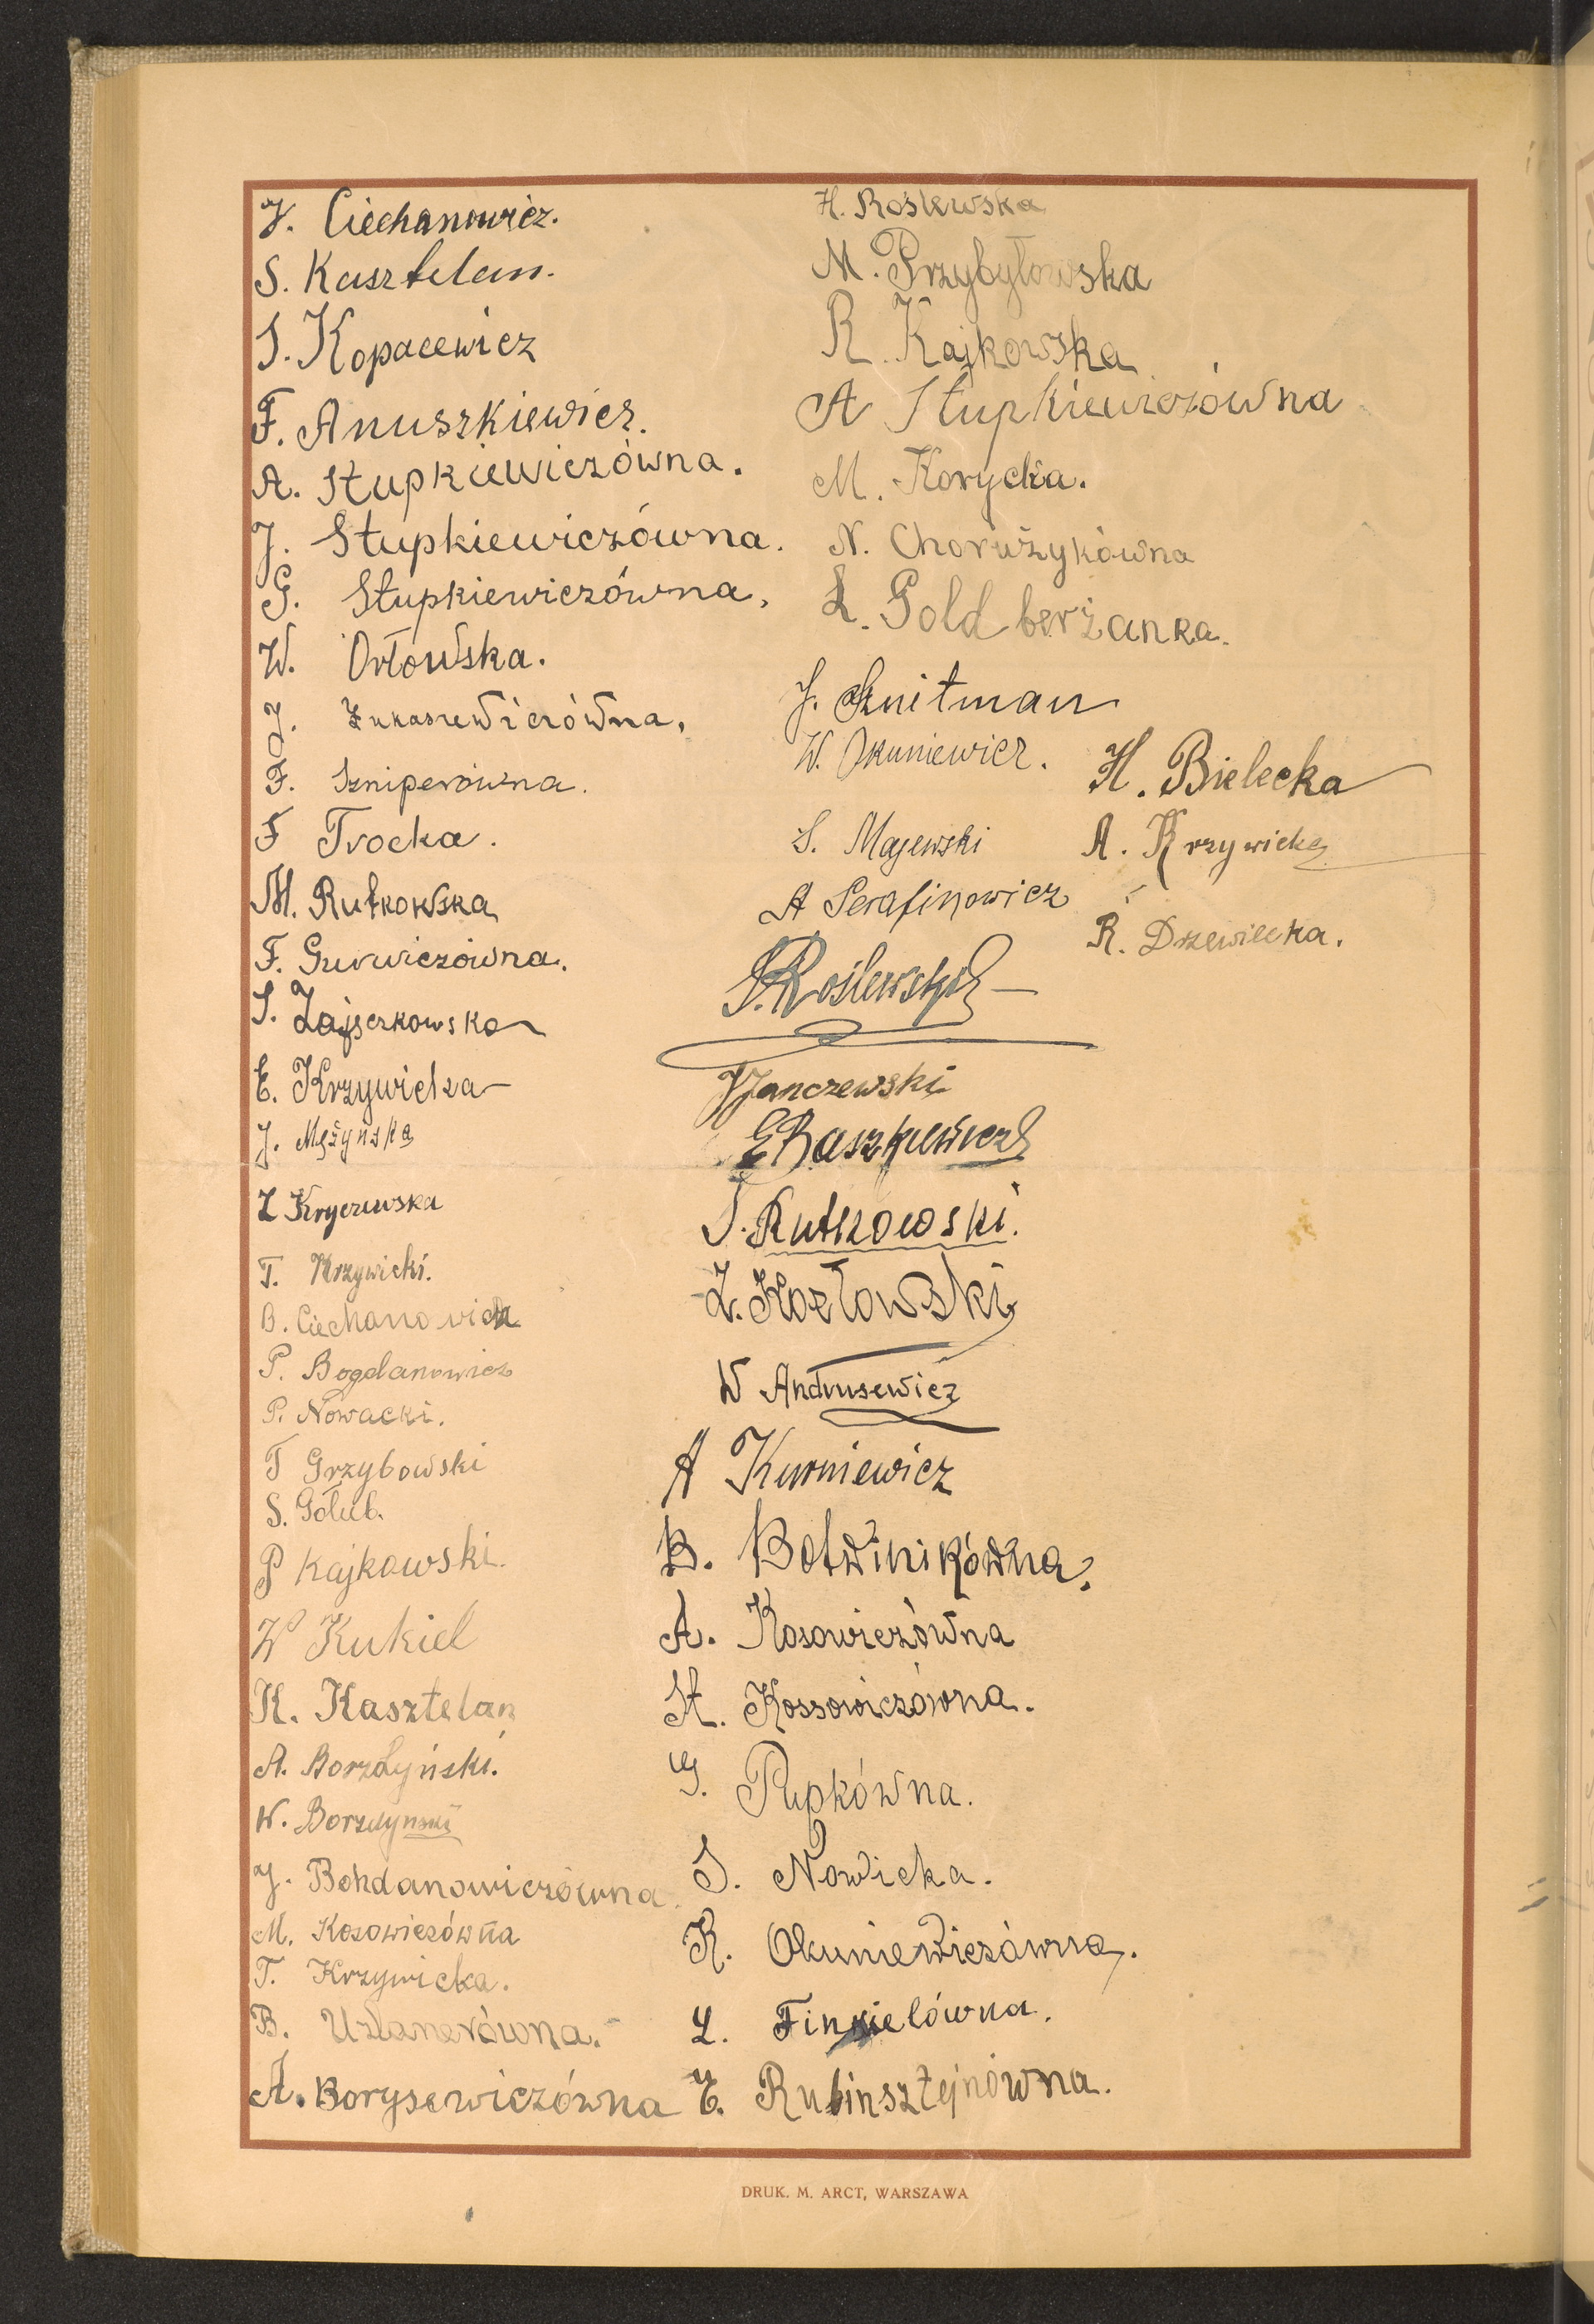 J. Ciechanowicz.
S. Kasztelan.
J. Kopacewicz
F. Anuszkiewicz.
A. Stupkiewiczówna.
J. Stupkiewiczówna.
G. Stupkiewiczówna,
W. Orłowska.
J. Łukaszewiczówna.
F. Szniperówna.
F Trocka.
M. Rutkowska
F. Gurwiczówna.
S. Zajączkowska
E. Krzywicka
J. Mężyńska
Z Kryczewska
T. Krzywicki.
B. Ciechanowicz
P. Bogdanowicz
P. Nowacki.
T Grzybowski
S. Gołub.
P Kajkowski.
W Kukiel
K. Kasztelan
A. Borzdyński.
W. Borzdynski
J. Bohdanowiczówna
M. Kosowiczówna
T. Krzywicka.
B. Uzdanerówna.
A. Borysewiczówna
H. Roślewska
M. Przybyłowska
R. Kajkowska
A Stupkiewiczówna
M. Korycka.
N. Chorużykówna
L. Goldberżanka.
J. Sznitman
W. Okuniewicz.
S. Majewski
A Serafinowicz
S. Roślewski
J Janczewski
E Baszkiewicz
S. Rutkowski.
Z. Kozłowski
W Andrusewicz
A Kurniewicz
B. Botwinikówna.
A. Kosowiczówna
H. Kossowiczówna.
G. Pupkówna.
S. Nowicka.
K. Okuniewiczówna.
L. Finkielówna.
E. Rubinsztejnówna.
H. Bielecka
A. Krzywicka
R. Drzewiecka.
DRUK. M. ARCT, WARSZAWA